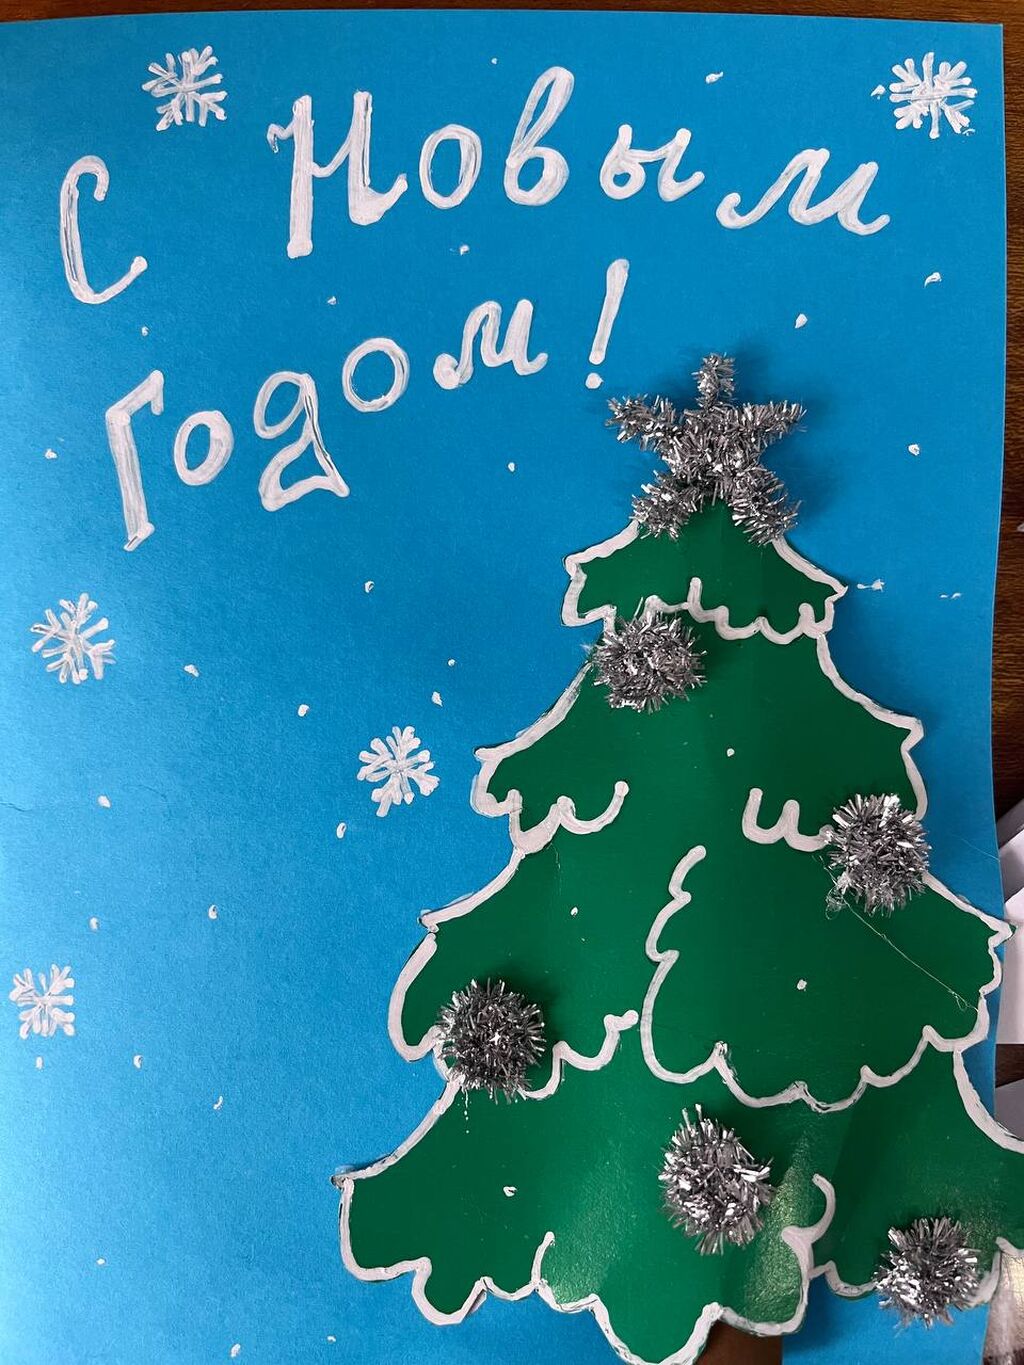 С Новым
Годом!